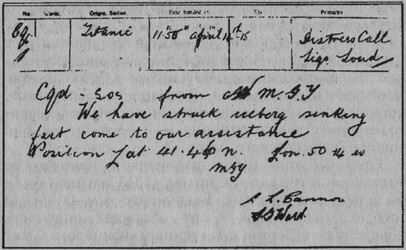 No. Words. Origin. Station. Time handed in To Remarks
Titanic 11:50" April 14th-15 Distress Call
Sigs Loud
Cqd - SOS from M.G.Y
We have struck iceberg sinking
fast come to our assistance
Position Lat 41.46 n. Lon. 50.14 w
MGY